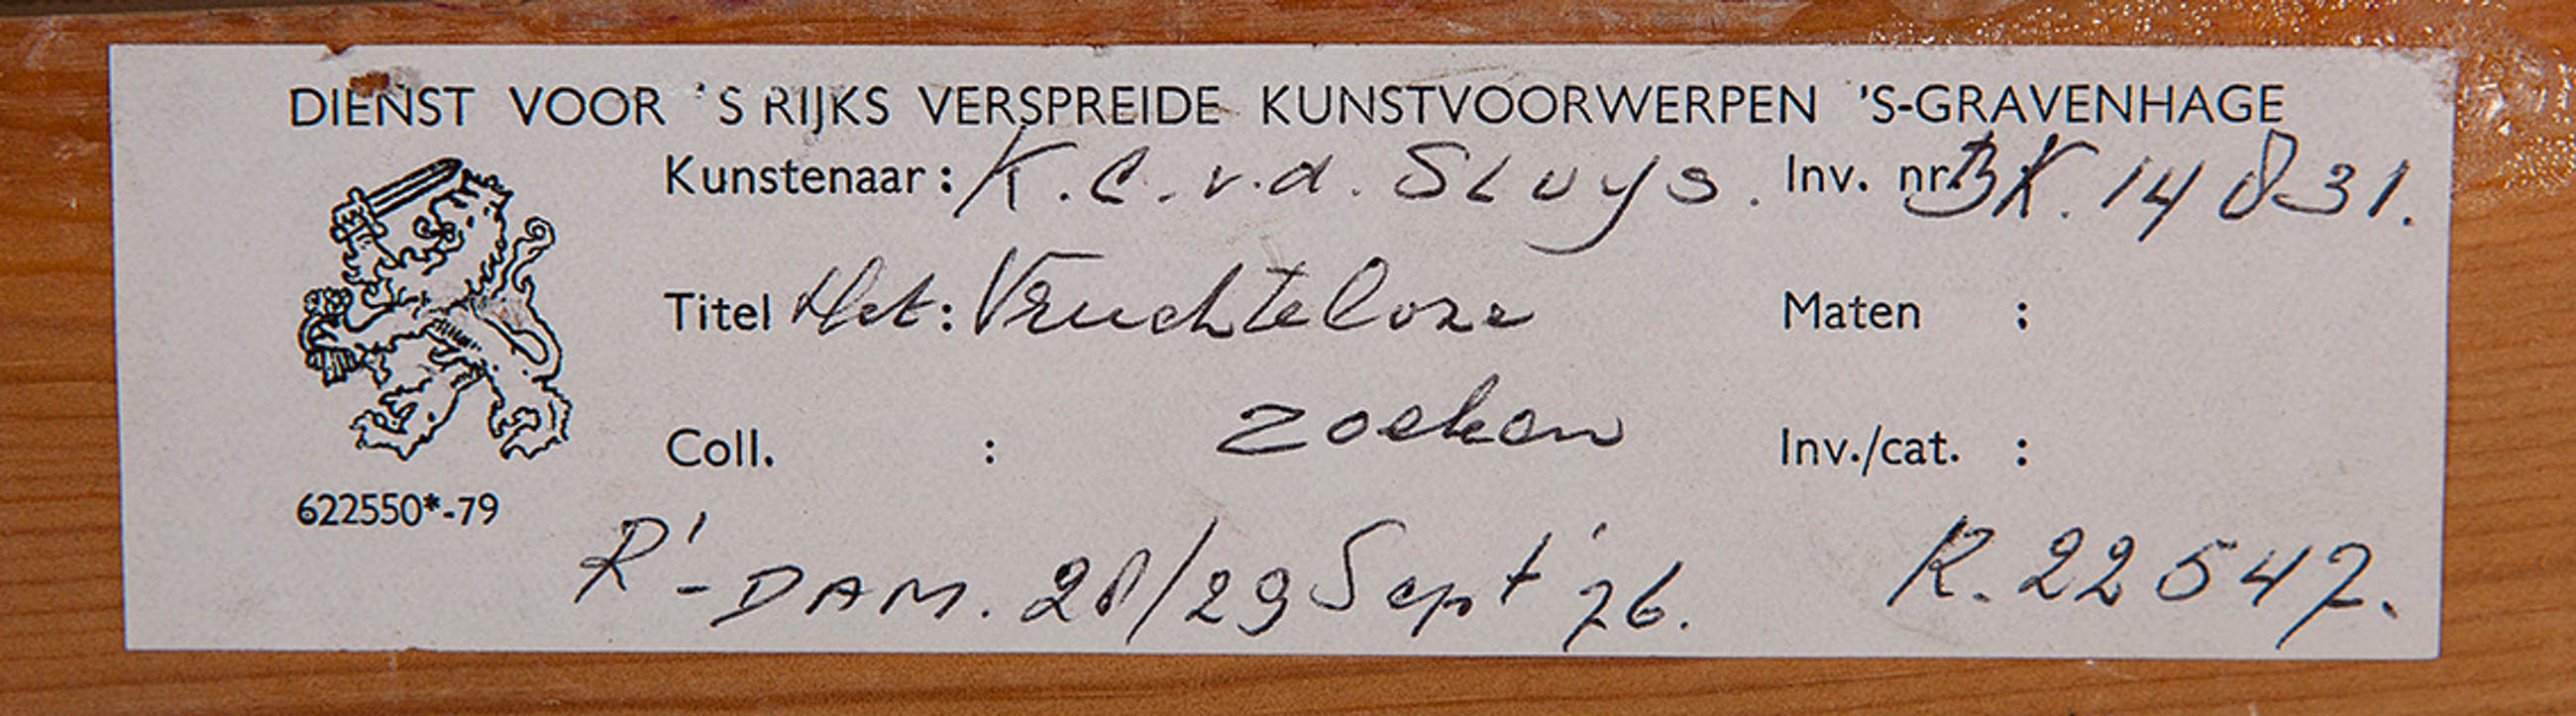 DIENST VOOR 'S RIJKS VERSPREIDE KUNSTVOORWERPEN 'S-GRAVENHAGE
Kunstenaar: K.C. v.d. Sluys. Inv. nr. BK. 14831.
Titel Het: Vruchteloze Maten :
zoeken
Coll. : Inv./cat. :
622550*-79
R'-DAM. 28/29 Sept '76. R. 22547.